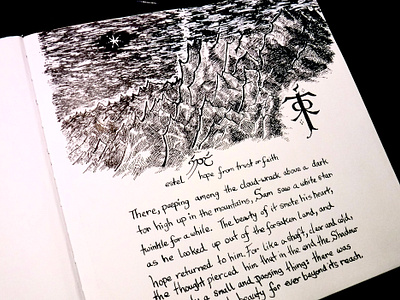 estel hope from trust or faith
There, peeping among the cloud-wrack above a dark
tor high up in the mountains, Sam saw a white star
twinkle for a while. The beauty of it smote his heart,
as he looked up out of the forsaken land, and
hope returned to him. For like a shaft, clear and cold,
the thought pierced him that in the end the Shadow
a small and passing thing: there was
beauty for ever beyond its reach.